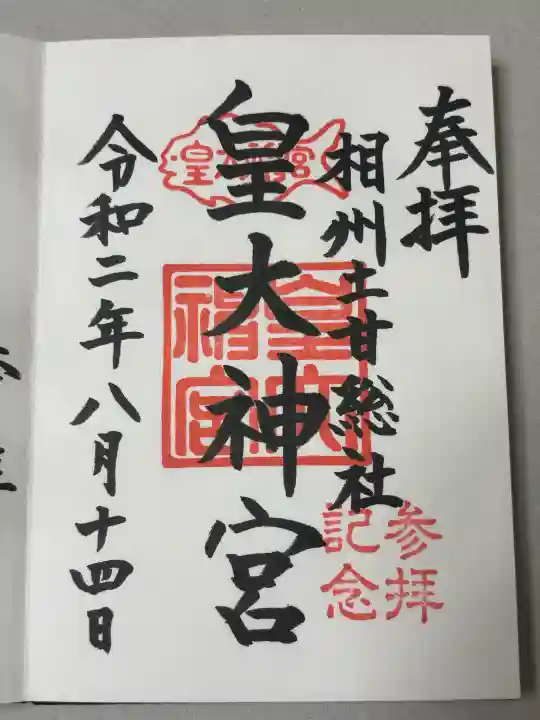 奉拝
相州土甘総社
皇大神宮
令和二年八月十四日
皇大神宮
皇大神宮
参拝
記念